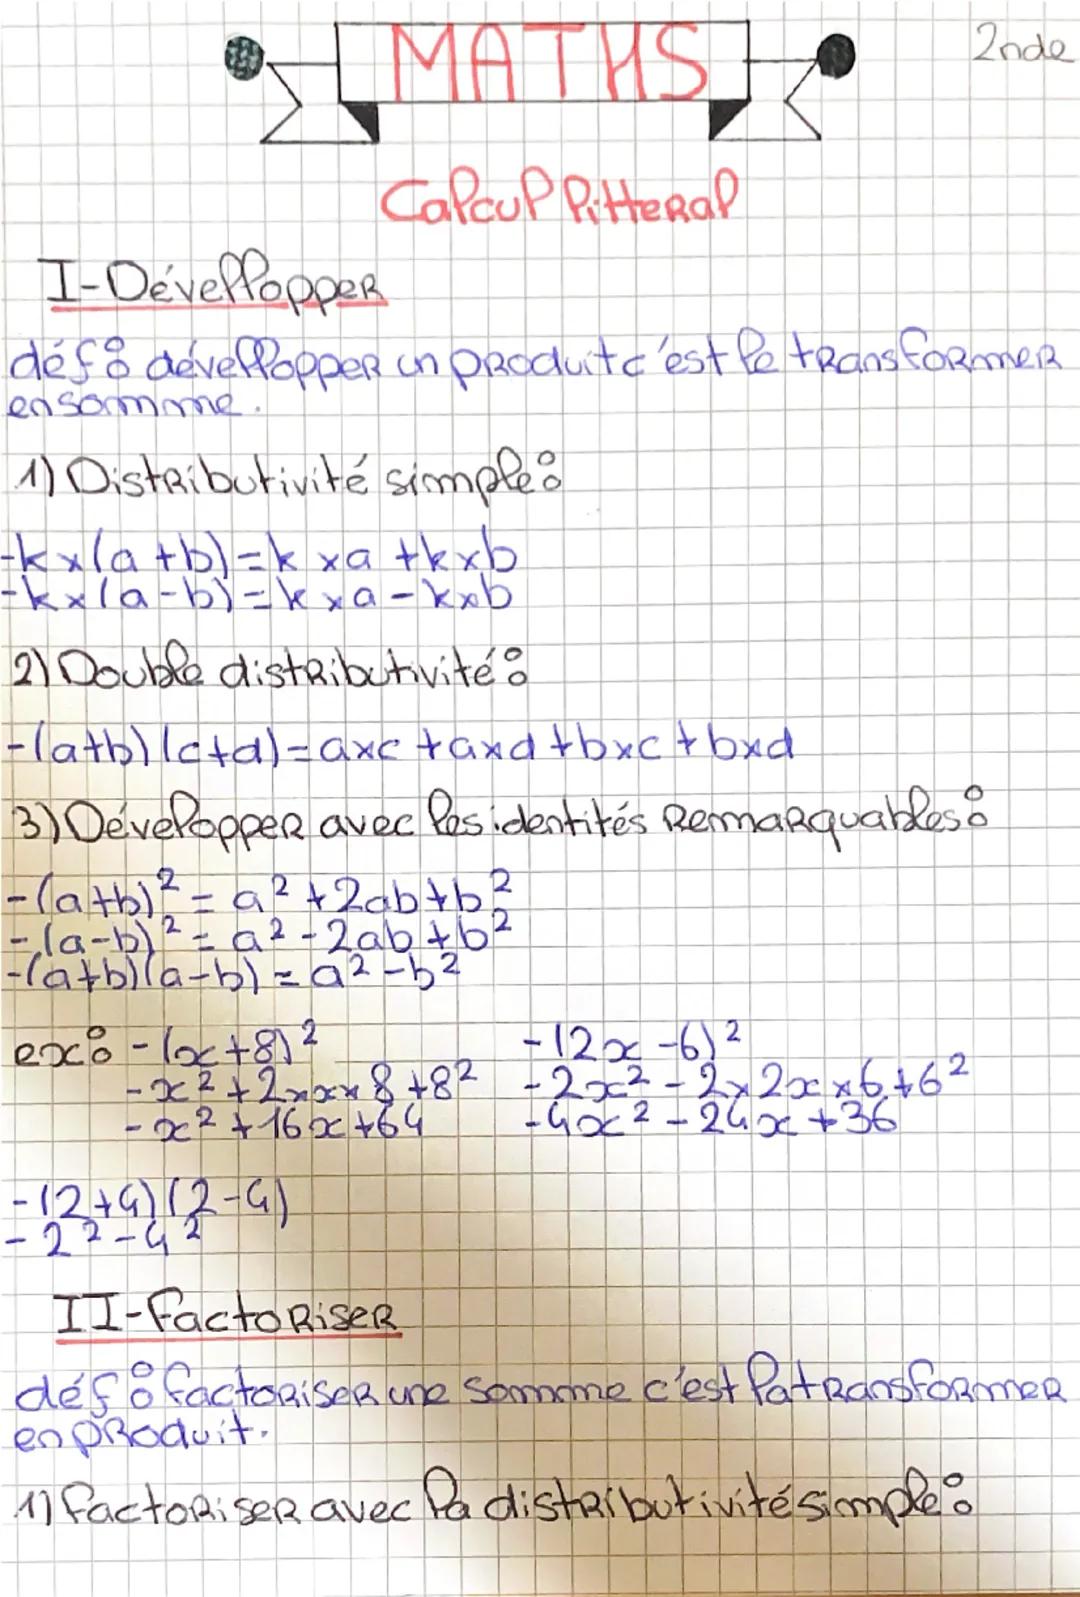 MATHS
2nde
Calcul litteral
I-Évellopper
déf: dévellopper un produit c'est le transformer
en somme.
1) Distributivité simple:
-k×(a+b)=k×a+k×b
-k×(a-b)=k×a-k×b
2) Double distributivité:
-(a+b)(c+d)=a×c+a×d+b×c+b×d
3) Développer avec les identités remarquables:
-(a+b)²=a²+2ab+b²
-(a-b)²=a²-2ab+b²
-(a+b)(a-b)=a²-b²
ex: -(x+8)² -(2x-6)²
-x²+2×x×8+8² -2x²-2×2x×6+6²
-x²+16x+64 -4x²-24x+36
-(2+4)(2-4)
-2²-4²
II-factoriser
déf: factoriser une somme c'est la transformer
en produit.
1) factoriser avec la distributivité simple: